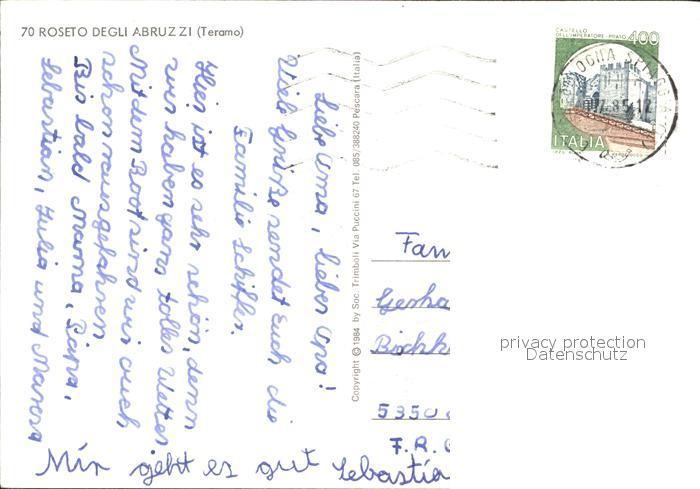 70 ROSETO DEGLI ABRUZZI (Teramo)
Liebe Oma, lieber Opa!
Viele Grüße sendet Euch die
Familie Schiffer.
Hier ist es sehr schön, denn
wir haben ganz tolles Wetter
Mit dem Boot sind wir auch
schon rausgefahren
Bis bald Mama, Papa,
Sebastian, Julia und Marera
Mir geht es gut Sebastia
Copyright © 1984 by Soc. Trimboli Via Puccini 67 Tel. 085/388240 Pescara (Italia)
CASTELLO
DELL'IMPERATORE - PRATO 400
ITALIA
Fam
Gerha
Birkk
5350
F.R.G
privacy protection
Datenschutz